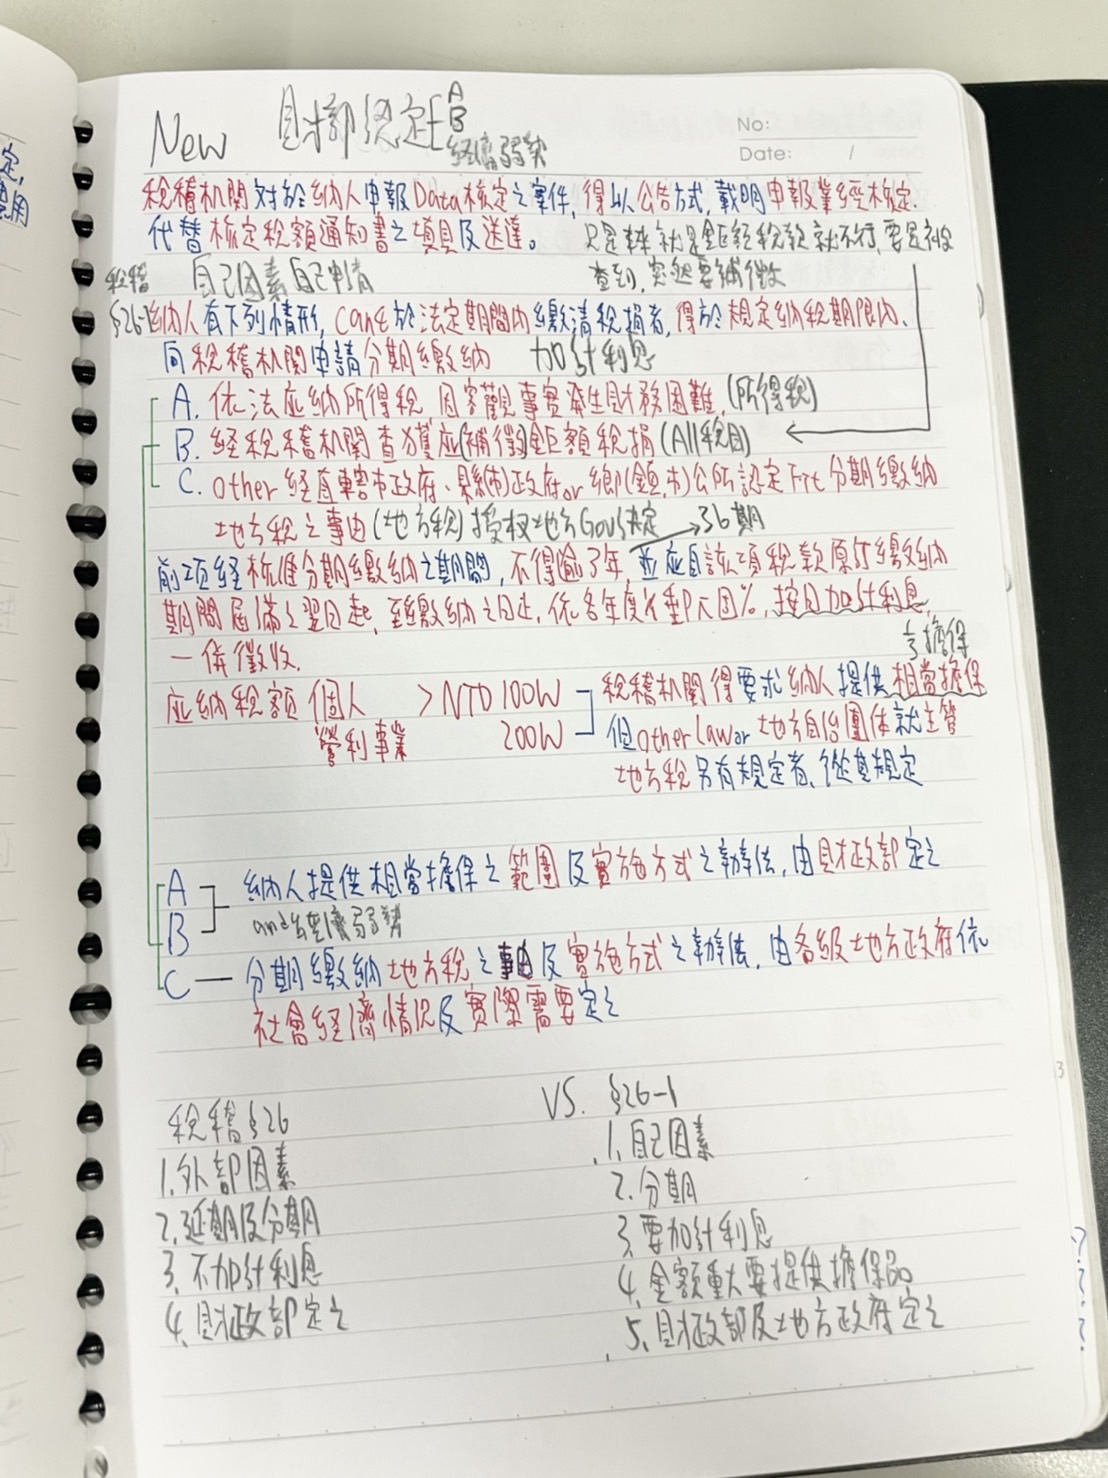 New 財部認定 A
B
經濟弱勢
No:
Date: /
稅稽機関对於納人申報Data核定之案件,得以公告方式,載明申報業經核定,
代替核定稅額通知書之填具及送達。 只是本來就是鉅額稅款就不行,要是被
查到,突然要補徵
稅稽 自己因素自己申請
§26-1納人有下列情形,can't於法定期間内繳清稅捐者,得於規定納稅期限内,
向稅稽机関申請分期繳納 加計利息
A. 依法应納所得稅,因客觀事實發生財務困難,(所得稅)
B. 経稅稽機関查獲应(補徵)鉅額稅捐(All稅目)
C. other経直轄市政府、縣(市)政府or鄉(鎮、市)公所認定 分期繳納
地方稅之事由(地方稅)授权地方Gov决定 →36期
前項経核准分期繳納之期間,不得逾3年,並应自該項稅款原訂繳納
期間屆滿之翌日起,至繳納之日止,依各年度 %,按日加計利息,
一併徵收.
应納稅額 個人 >NTD 100W
營利事業 200W
要擔保
稅稽机関得要求納人提供相當擔保
但other Law or 地方自治團体就主管
地方稅另有規定者,從其規定
A
B
納人提供相當擔保之範圍及實施方式之辦法,由財政部定之
and経濟弱勢
C — 分期繳納地方稅之事由及實施方式之辦法,由各級地方政府依
社會経濟情況及實際需要定之
稅稽§26 VS. §26-1
1.外部因素
2.延期及分期
3.不加計利息
4.財政部定之
1.自己因素
2.分期
3.要加計利息
4.金額重大要提供擔保品
5.財政部及地方政府定之
3